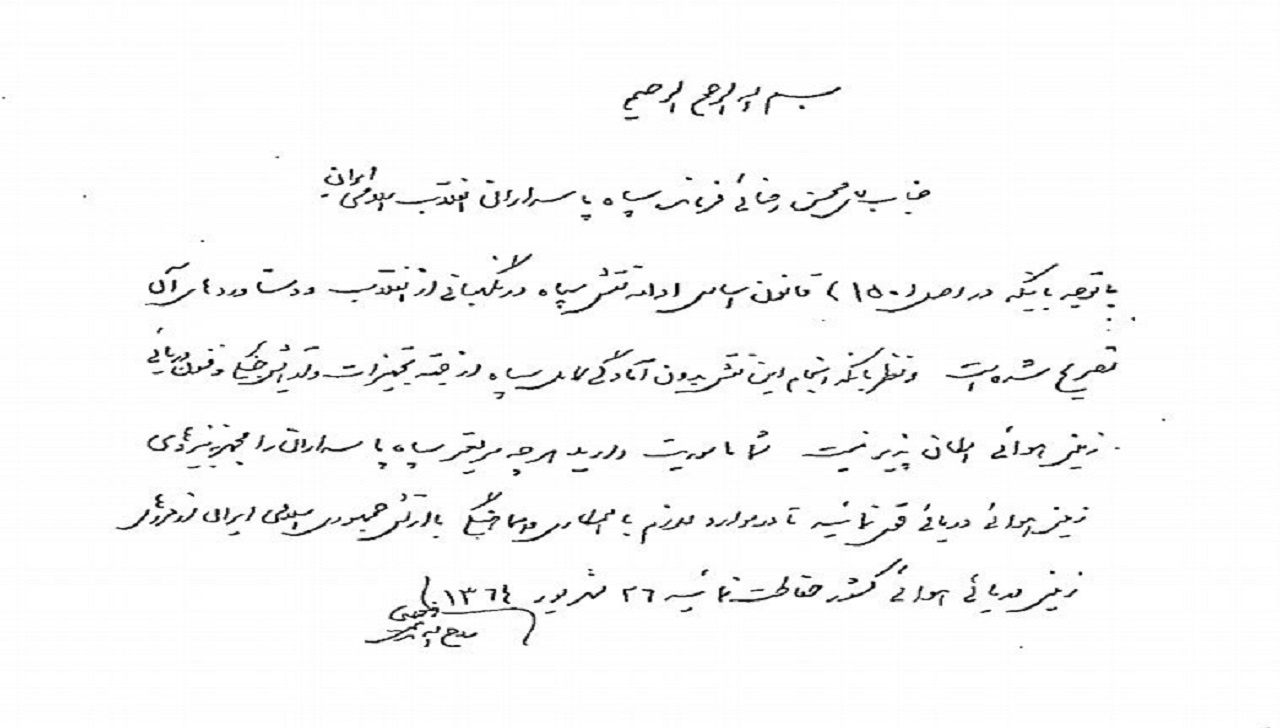 بسم الله الرحمن الرحیم
جناب آقای محسن رضائی فرمانده سپاه پاسداران انقلاب اسلامی ایران
با توجه باینکه در اصل (۱۵۰) قانون اساسی ادامه نقش سپاه در نگهبانی از انقلاب و دستاوردهای آن
تصریح شده است و نظر باینکه انجام این نقش بدون آمادگی کامل سپاه از جهت تجهیزات و فنون دریائی
زمینی هوائی امکان پذیر نیست شما ماموریت دارید هرچه سریعتر سپاه پاسداران را مجهز به نیروهای
زمینی هوائی دریائی قوی نمائید تا در موارد لازم با همکاری و هماهنگی با ارتش جمهوری اسلامی ایران از مرزهای
زمینی دریائی هوائی کشور حفاظت نمائید ۲۶ شهریور ۱۳۶۴
روح الله الموسوی الخمینی